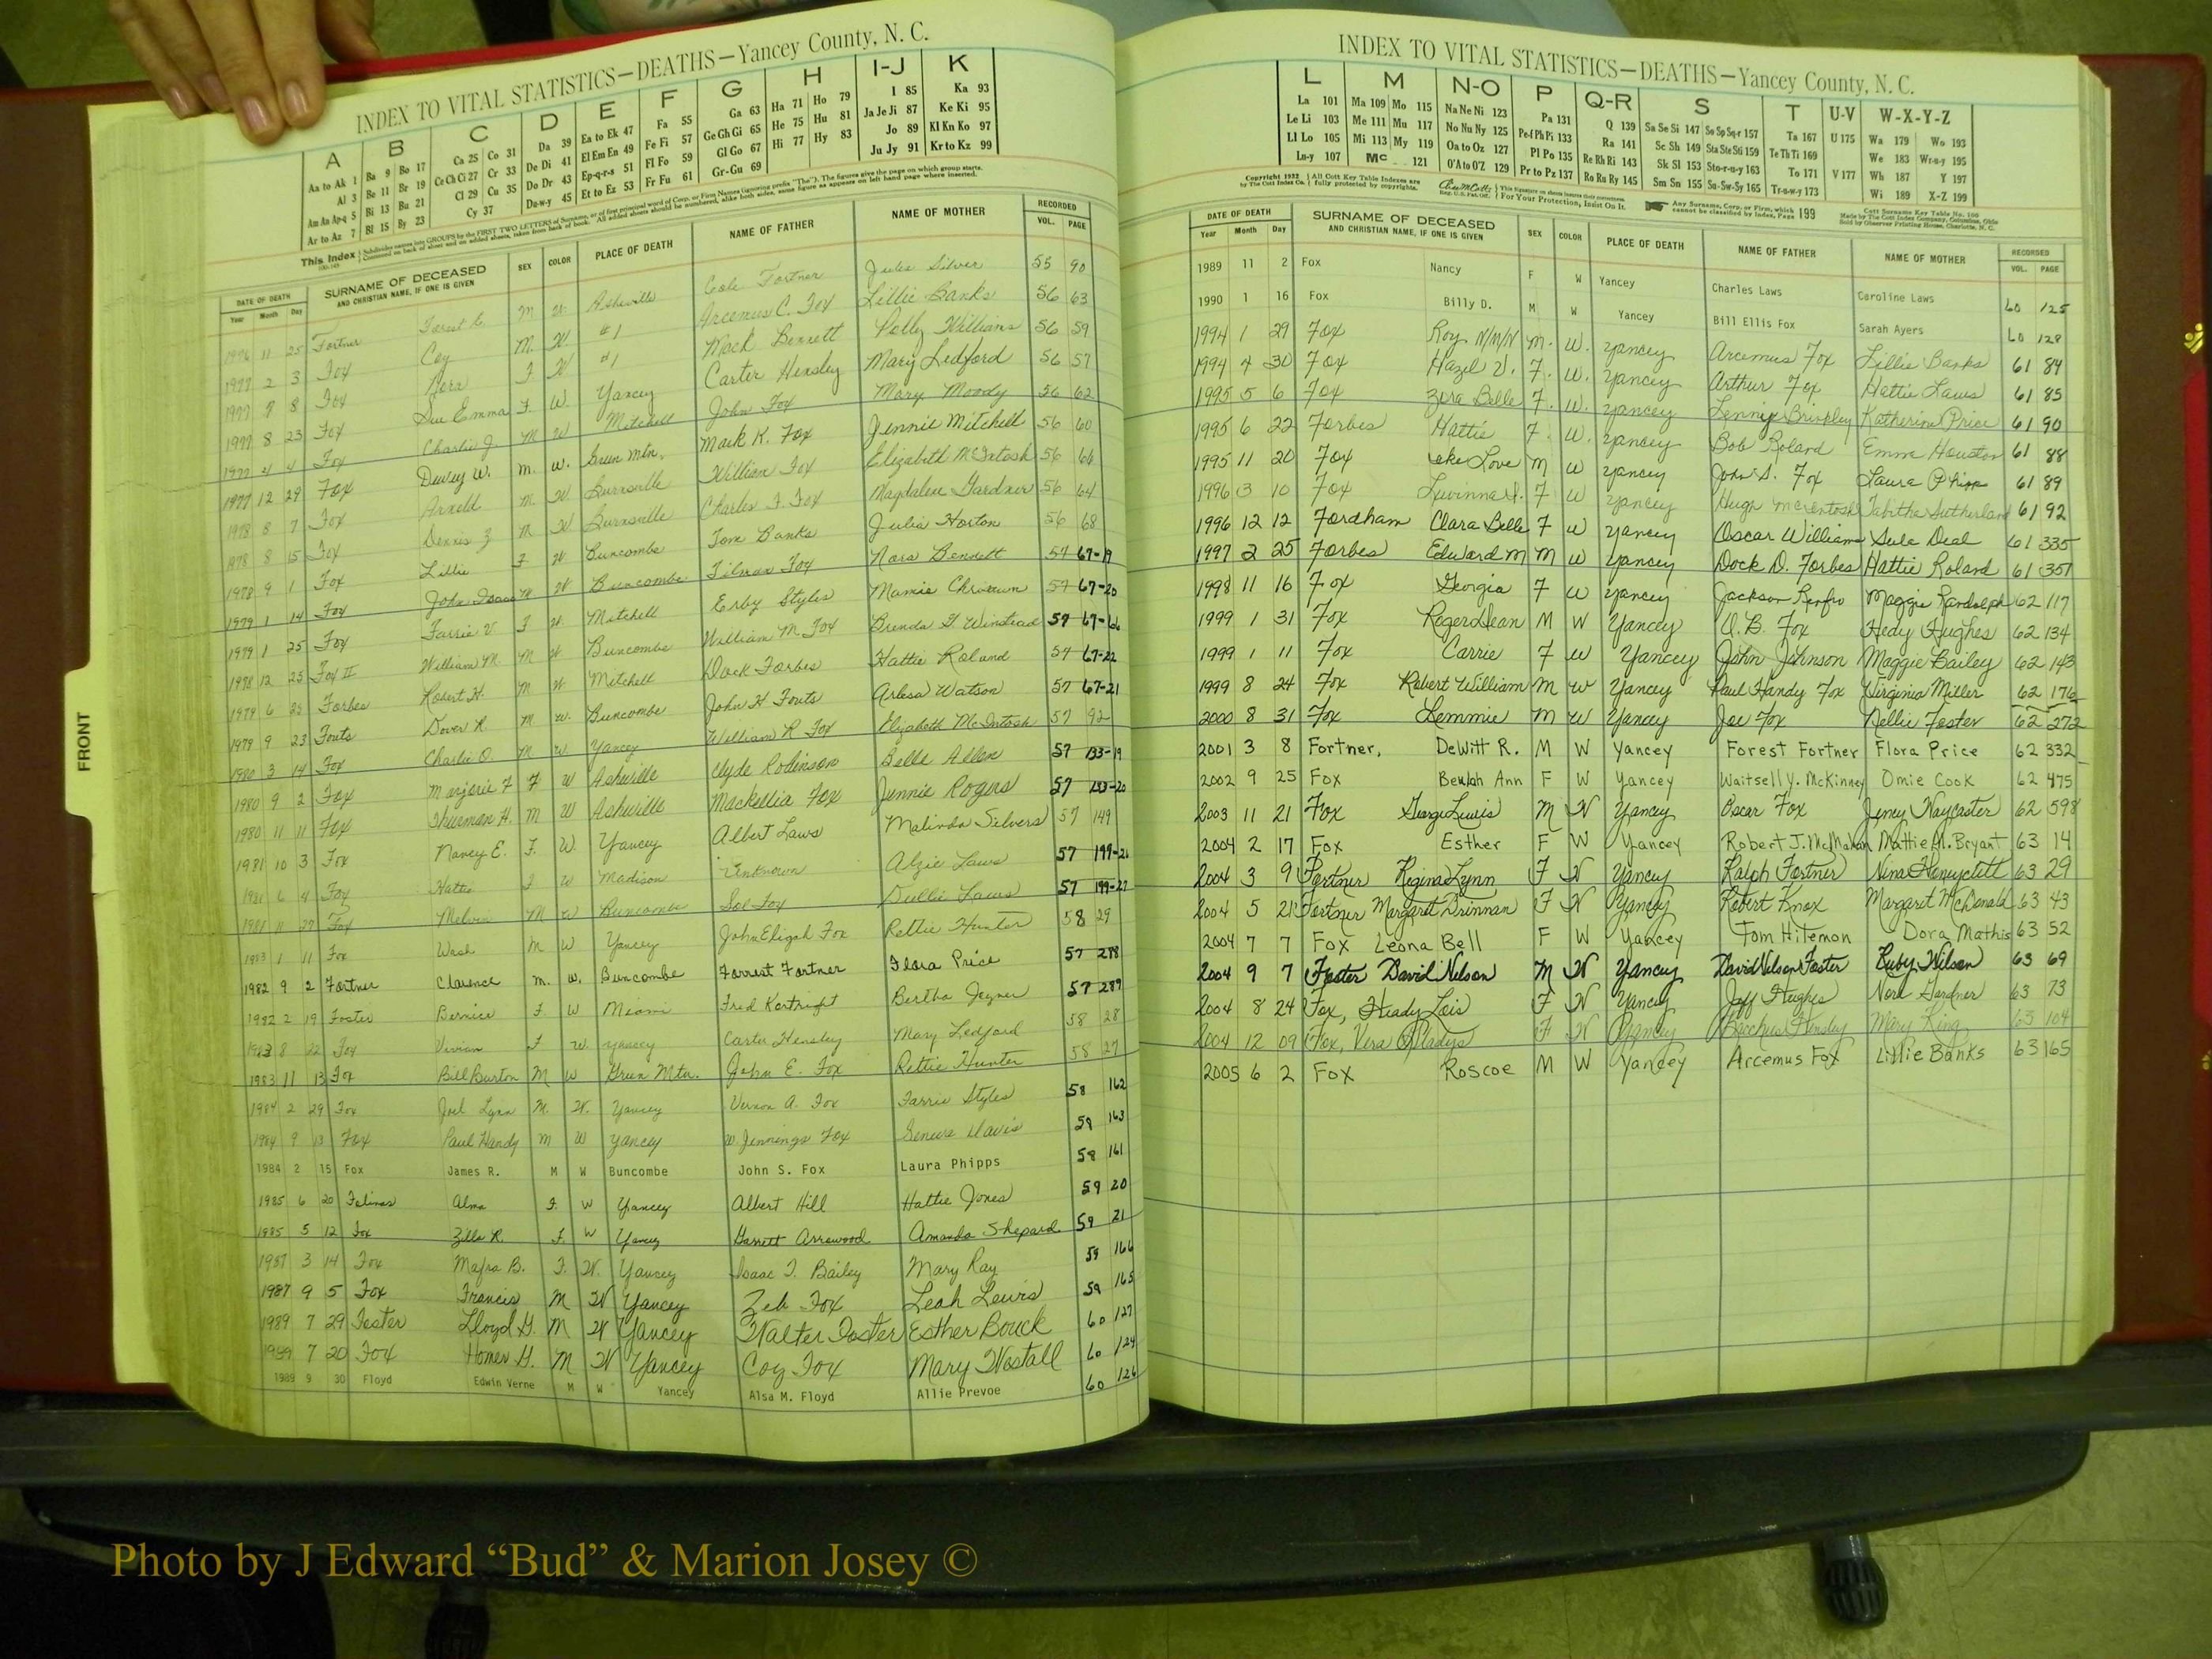 INDEX TO VITAL STATISTICS—DEATHS—Yancey County, N. C.
A B C D E F G H I-J K
Aa to Ak 1 Ba 9 Bo 17 Ca 25 Co 31 Da 39 Ea to Ek 47 Fa 55 Ga 63 Ha 71 Ho 79 I 85 Ka 93
Al 3 Be 11 Br 19 Ce Ch Ci 27 Cr 33 De Di 41 El Em En 49 Fe Fi 57 Ge Gh Gi 65 He 75 Hu 81 Ja Je Ji 87 Ke Ki 95
Am An Ap-q 5 Bi 13 Bu 21 Cl 29 Cu 35 Do Dr 43 Ep-q-r-s 51 Fl Fo 59 Gl Go 67 Hi 77 Hy 83 Jo 89 Kl Kn Ko 97
Ar to Az 7 Bl 15 By 23 Cy 37 Du-w-y 45 Et to Ez 53 Fr Fu 61 Gr-Gu 69 Ju Jy 91 Kr to Kz 99
This Index
DATE OF DEATH SURNAME OF DECEASED AND CHRISTIAN NAME, IF ONE IS GIVEN SEX COLOR PLACE OF DEATH NAME OF FATHER NAME OF MOTHER RECORDED
Year Month Day VOL. PAGE
1976 11 25 Fortner Forest C. M W Asheville Cole Fortner Julia Silver 55 90
1977 2 3 Fox Coy M. W #1 Arcemus C. Fox Lillie Banks 56 63
1977 7 8 Fox Nora F W #1 Mack Bennett Polly Williams 56 59
1977 8 23 Fox Sue Emma F. W. Yancey Carter Hensley Mary Ledford 56 57
1977 4 4 Fox Charlie J. M W Mitchell John Fox Mary Moody 56 62
1977 12 29 Fox Dewey W. M. W. Green Mtn. Mark K. Fox Jennie Mitchell 56 60
1978 6 7 Fox Arnold M. W. Burnsville William Fox Elizabeth McIntosh 56 66
1978 8 15 Fox Dennis Z M W Burnsville Charles F. Fox Magdalen Gardner 56 64
1978 9 1 Fox Lillie F W Buncombe Tom Banks Julia Horton 56 68
1979 1 14 Fox John Isaac M W Buncombe Tilman Fox Nora Bennett 57 67-19
1979 1 25 Fox Farrie V F W Mitchell Erby Styles Mamie 57 67-20
1978 12 25 Fox II William M. M W Buncombe William M Fox Brenda G Winstead 57 67-
1979 6 25 Forbes Robert H. M W Mitchell Dock Forbes Hattie Roland 57 67-22
1979 9 23 Fouts Dover R M W. Buncombe John H Fouts Arlesa Watson 57 67-21
1980 3 14 Fox Charlie O. M W Yancey William R Fox Elizabeth McIntosh 57 92
1980 9 2 Fox Marjorie F F W Asheville Clyde Robinson Belle Allen 57 133-19
1980 11 11 Fox Thurman H. M W Asheville Mackellia Fox Jennie Rogers 57 133-20
1981 10 3 Fox Nancy E. F. W. Yancey Albert Laws Malinda Silvers 57 149
1981 6 4 Fox Hattie F W Madison Unknown Alzie Laws 57 199-21
1981 11 27 Fox Melvin M W Buncombe Sol Fox Dullie Laws 57 199-27
1983 1 11 Fox Wash M W Yancey John Elijah Fox Rettie Hunter 58 29
1982 9 2 Fortner Clarence M. W. Buncombe Forrest Fortner Flora Price 57 288
1982 2 19 Foster Bernice F. W Miami Fred Kortright Bertha Joyner 57 289
1983 8 22 Fox Vivian F W. Yancey Carter Hensley Mary Ledford 58 28
1983 11 13 Fox Bill Burton M W Green Mtn. John E. Fox Rettie Hunter 58 27
1984 2 29 Fox Joel Lynn M. W. Yancey Vernon A. Fox Farrie Styles 58 162
1984 9 13 Fox Paul Handy M W Yancey W. Jennings Fox Geneva Davis 58 163
1984 2 15 Fox James R. M W Buncombe John S. Fox Laura Phipps 58 161
1985 6 20 Alma F. W Yancey Albert Hill Hattie Jones 59 20
1985 5 12 Fox Zilla R. F. W Yancey Garrett Arrowood Amanda Shepard 59 21
1987 3 14 Fox Mafra B. F. W. Yancey Isaac T. Bailey Mary Ray 59 166
1987 9 5 Fox Francis M W Yancey Zeb Fox Leah Lewis 59 165
1989 7 29 Foster Lloyd G. M W Yancey Walter Foster Esther Bouck 60 127
1989 7 20 Fox Homer G. M W Yancey Coy Fox Mary Wostall 60 124
1989 9 30 Floyd Edwin Verne M W Yancey Alsa M. Floyd Allie Prevoe 60 126
FRONT
INDEX TO VITAL STATISTICS—DEATHS—Yancey County, N. C.
L M N-O P Q-R S T U-V W-X-Y-Z
La 101 Ma 109 Mo 115 Na Ne Ni 123 Pa 131 Q 139 Sa Se Si 147 So Sp Sq-r 157 Ta 167 U 175 Wa 179 Wo 193
Le Li 103 Me 111 Mu 117 No Nu Ny 125 Pe-f Ph Pi 133 Ra 141 Sc Sh 149 Sta Ste Sti 159 Te Th Ti 169 We 183 Wr-u-y 195
Ll Lo 105 Mi 113 My 119 Oa to Oz 127 Pl Po 135 Re Rh Ri 143 Sk Sl 153 Sto-r-u-y 163 To 171 V 177 Wh 187 Y 197
Lu-y 107 Mc 121 O'A to O'Z 129 Pr to Pz 137 Ro Ru Ry 145 Sm Sn 155 Su-Sw-Sy 165 Tr-u-w-y 173 Wi 189 X-Z 199
Copyright 1932 by The Cott Index Co. All Cott Key Table Indexes are fully protected by copyrights. For Your Protection, Insist On It. Any Surname, Corp. or Firm, which cannot be classified by Index, Page 199 Cott Surname Key Table No. 100 Made by The Cott Index Company, Columbus, Ohio Sold by Observer Printing House, Charlotte, N. C.
DATE OF DEATH SURNAME OF DECEASED AND CHRISTIAN NAME, IF ONE IS GIVEN SEX COLOR PLACE OF DEATH NAME OF FATHER NAME OF MOTHER RECORDED
Year Month Day VOL. PAGE
1989 11 2 Fox Nancy F W Yancey Charles Laws Caroline Laws 60 125
1990 1 16 Fox Billy D. M W Yancey Bill Ellis Fox Sarah Ayers 60 128
1994 1 29 Fox Roy N/M/N M. W. Yancey Arcemus Fox Lillie Banks 61 84
1994 4 30 Fox Hazel V. F. W. Yancey Arthur Fox Hattie Laws 61 85
1995 5 6 Fox Zera Belle F. W. Yancey Lennie Brinkley Katherine Price 61 90
1995 6 22 Forbes Hattie F. W. Yancey Bob Roland Emma Houston 61 88
1995 11 20 Fox Love M W Yancey John S. Fox Laura Phipps 61 89
1996 3 10 Fox Luvinna F W Yancey Hugh McIntosh Tabitha Sutherland 61 92
1996 12 12 Fordham Clara Belle F W Yancey Oscar Williams Sula Deal 61 335
1997 2 25 Forbes Edward M M W Yancey Dock D. Forbes Hattie Roland 61 351
1998 11 16 Fox Georgia F W Yancey Jackson Renfro Maggie Randolph 62 117
1999 1 31 Fox Roger Dean M W Yancey O. B. Fox Hedy Hughes 62 134
1999 1 11 Fox Carrie F W Yancey John Johnson Maggie Bailey 62 143
1999 8 24 Fox Robert William M W Yancey Paul Handy Fox Virginia Miller 62 176
2000 8 31 Fox Lemmie M W Yancey Joe Fox Nellie Foster 62 272
2001 3 8 Fortner, DeWitt R. M W Yancey Forest Fortner Flora Price 62 332
2002 9 25 Fox Beulah Ann F W Yancey Waitsell Y. McKinney Omie Cook 62 475
2003 11 21 Fox George Lewis M W Yancey Oscar Fox Jeney Waycaster 62 598
2004 2 17 Fox Esther F W Yancey Robert J. McMahan Mattie M. Bryant 63 14
2004 3 9 Fortner Regina Lynn F W Yancey Ralph Fortner Nina Honeycutt 63 29
2004 5 21 Fortner Margaret Drinnan F W Yancey Robert Knox Margaret McDonald 63 43
2004 7 7 Fox Leona Bell F W Yancey Tom Hilemon Dora Mathis 63 52
2004 9 7 Foster David Nelson M W Yancey David Nelson Foster Ruby Wilson 63 69
2004 8 24 Fox, Heady Lois F W Yancey Jeff Hughes Nora Gardner 63 73
2004 12 09 Fox, Vera Gladys F W Yancey Bacchus Hensley Mary King 63 104
2005 6 2 Fox Roscoe M W Yancey Arcemus Fox Lillie Banks 63 165
Photo by J Edward “Bud” & Marion Josey ©